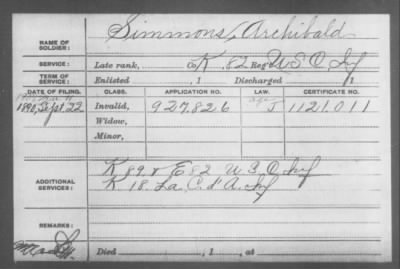 NAME OF SOLDIER: Simmons, Archibald
SERVICE: Late rank, Co. K, 82 Reg't U S C Inf
TERM OF SERVICE: Enlisted , 1 Discharged , 1
DATE OF FILING. CLASS. APPLICATION NO. LAW. CERTIFICATE NO.
1890, Sept 22 Invalid, 927,826 J 1121.011
Widow,
Minor,
ADDITIONAL SERVICES: K 89 & E 82 U S C Inf
K 18. La C. d'A. Inf
REMARKS:
Died , 1 , at